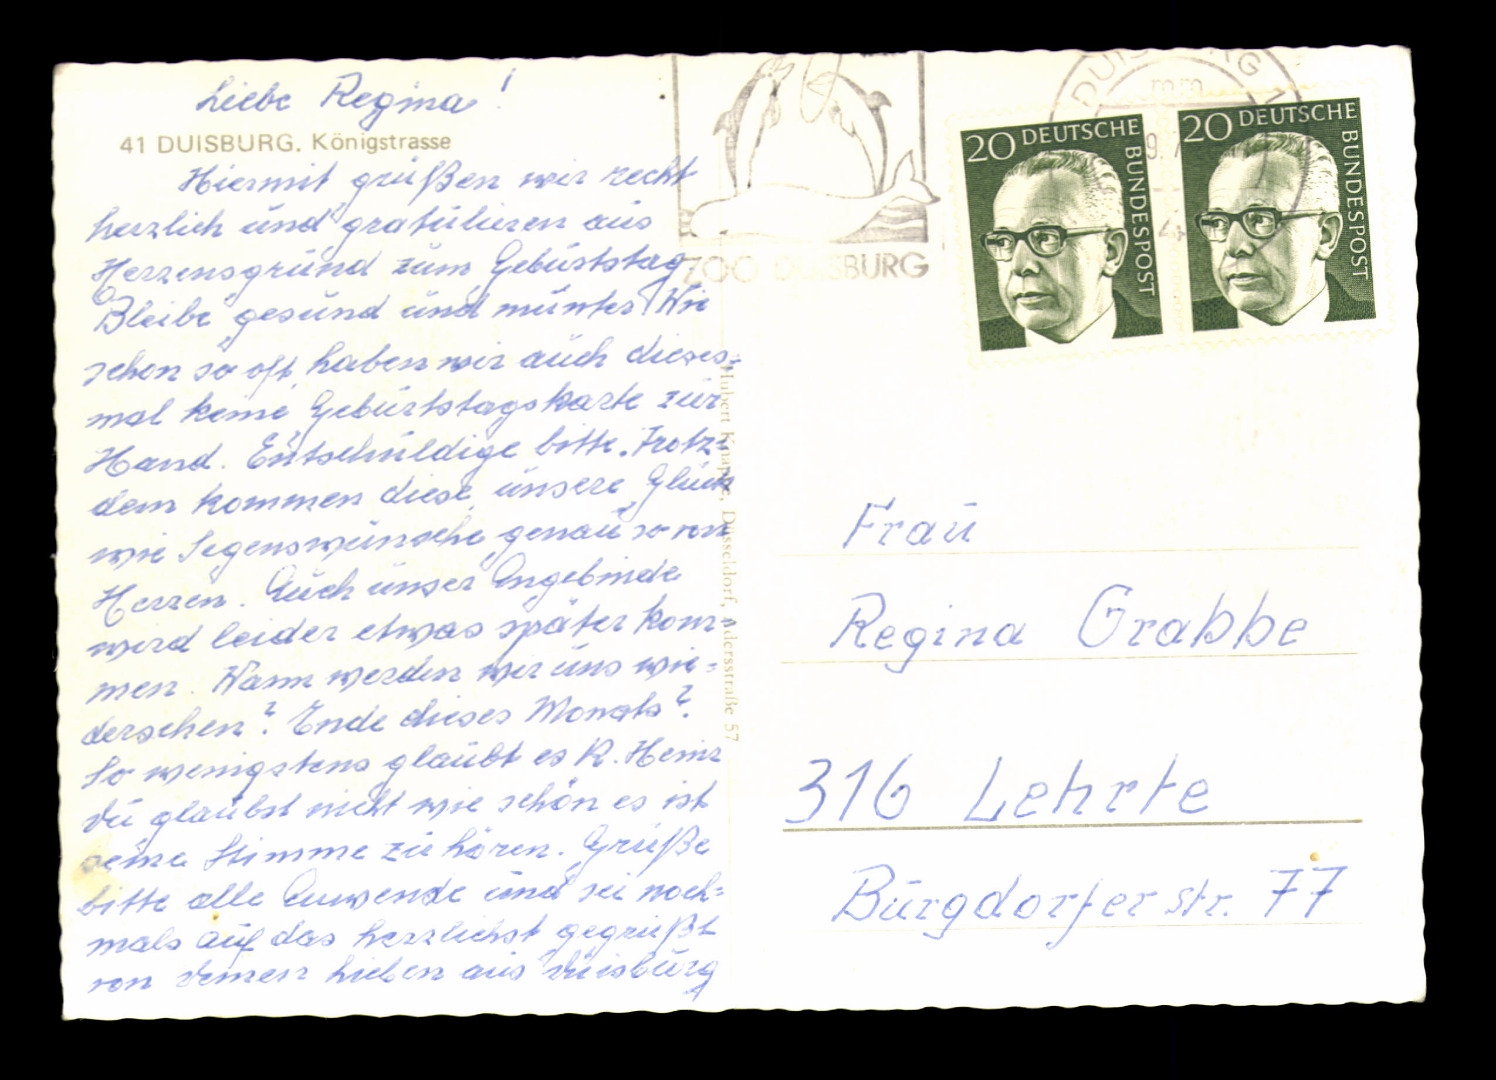 Liebe Regina!
41 DUISBURG. Königstrasse
Hiermit grüßen wir recht
herzlich und gratulieren aus
Herzensgrund zum Geburtstag
Bleibe gesund und munter. Wie
schon so oft, haben wir auch dieses-
mal keine Geburtstagskarte zur
Hand. Entschuldige bitte. Trotz-
dem kommen diese, unsere Glück
wie Segenswünsche, genau so von
Herzen. Auch unser Angebinde
wird leider etwas später kom-
men. Wann werden wir uns wie-
dersehen? Ende dieses Monats?
So wenigstens glaubt es K. Heinz
Du glaubst nicht wie schön es ist
Deine Stimme zu hören. Grüße
bitte alle Anwesende und sei noch-
mals auf das herzlichst gegrüßt
von Deinen Lieben aus Duisburg
Hubert Knappe, Düsseldorf, Adersstraße 57
ZOO DUISBURG
DUISBURG 1
mm
20 DEUTSCHE BUNDESPOST
20 DEUTSCHE BUNDESPOST
Frau
Regina Grabbe
316 Lehrte
Burgdorfer Str. 77